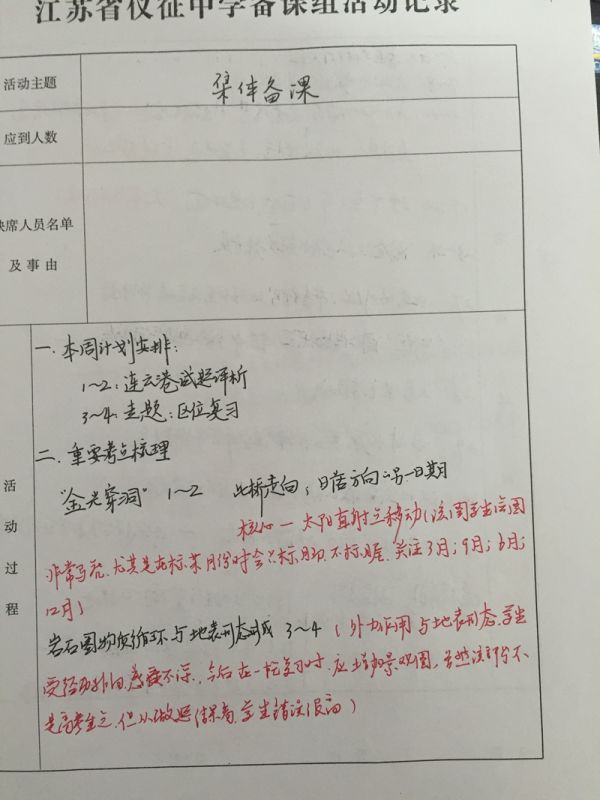 江苏省仪征中学备课组活动记录
活动主题 集体备课
应到人数
缺席人员名单
及事由
活动过程
一、本周计划安排:
1~2:连云港试题评析
3~4:主题:区位复习
二、重要考点梳理
"金光穿洞" 1~2 此桥走向;日落方向;另一日期
核心—太阳直射点移动(该图学生绘图
非常马虎,尤其是在标某月份时会只标月份,不标日期,关注3月;9月;6月;
12月)
岩石圈物质循环与地表形态形成 3~4 (外力作用与地表形态,学生
受经历,感受不深,今后在一轮复习时,应增加景观图,虽然该部分不
是高考重点,但从做题结果看,学生错误很高)